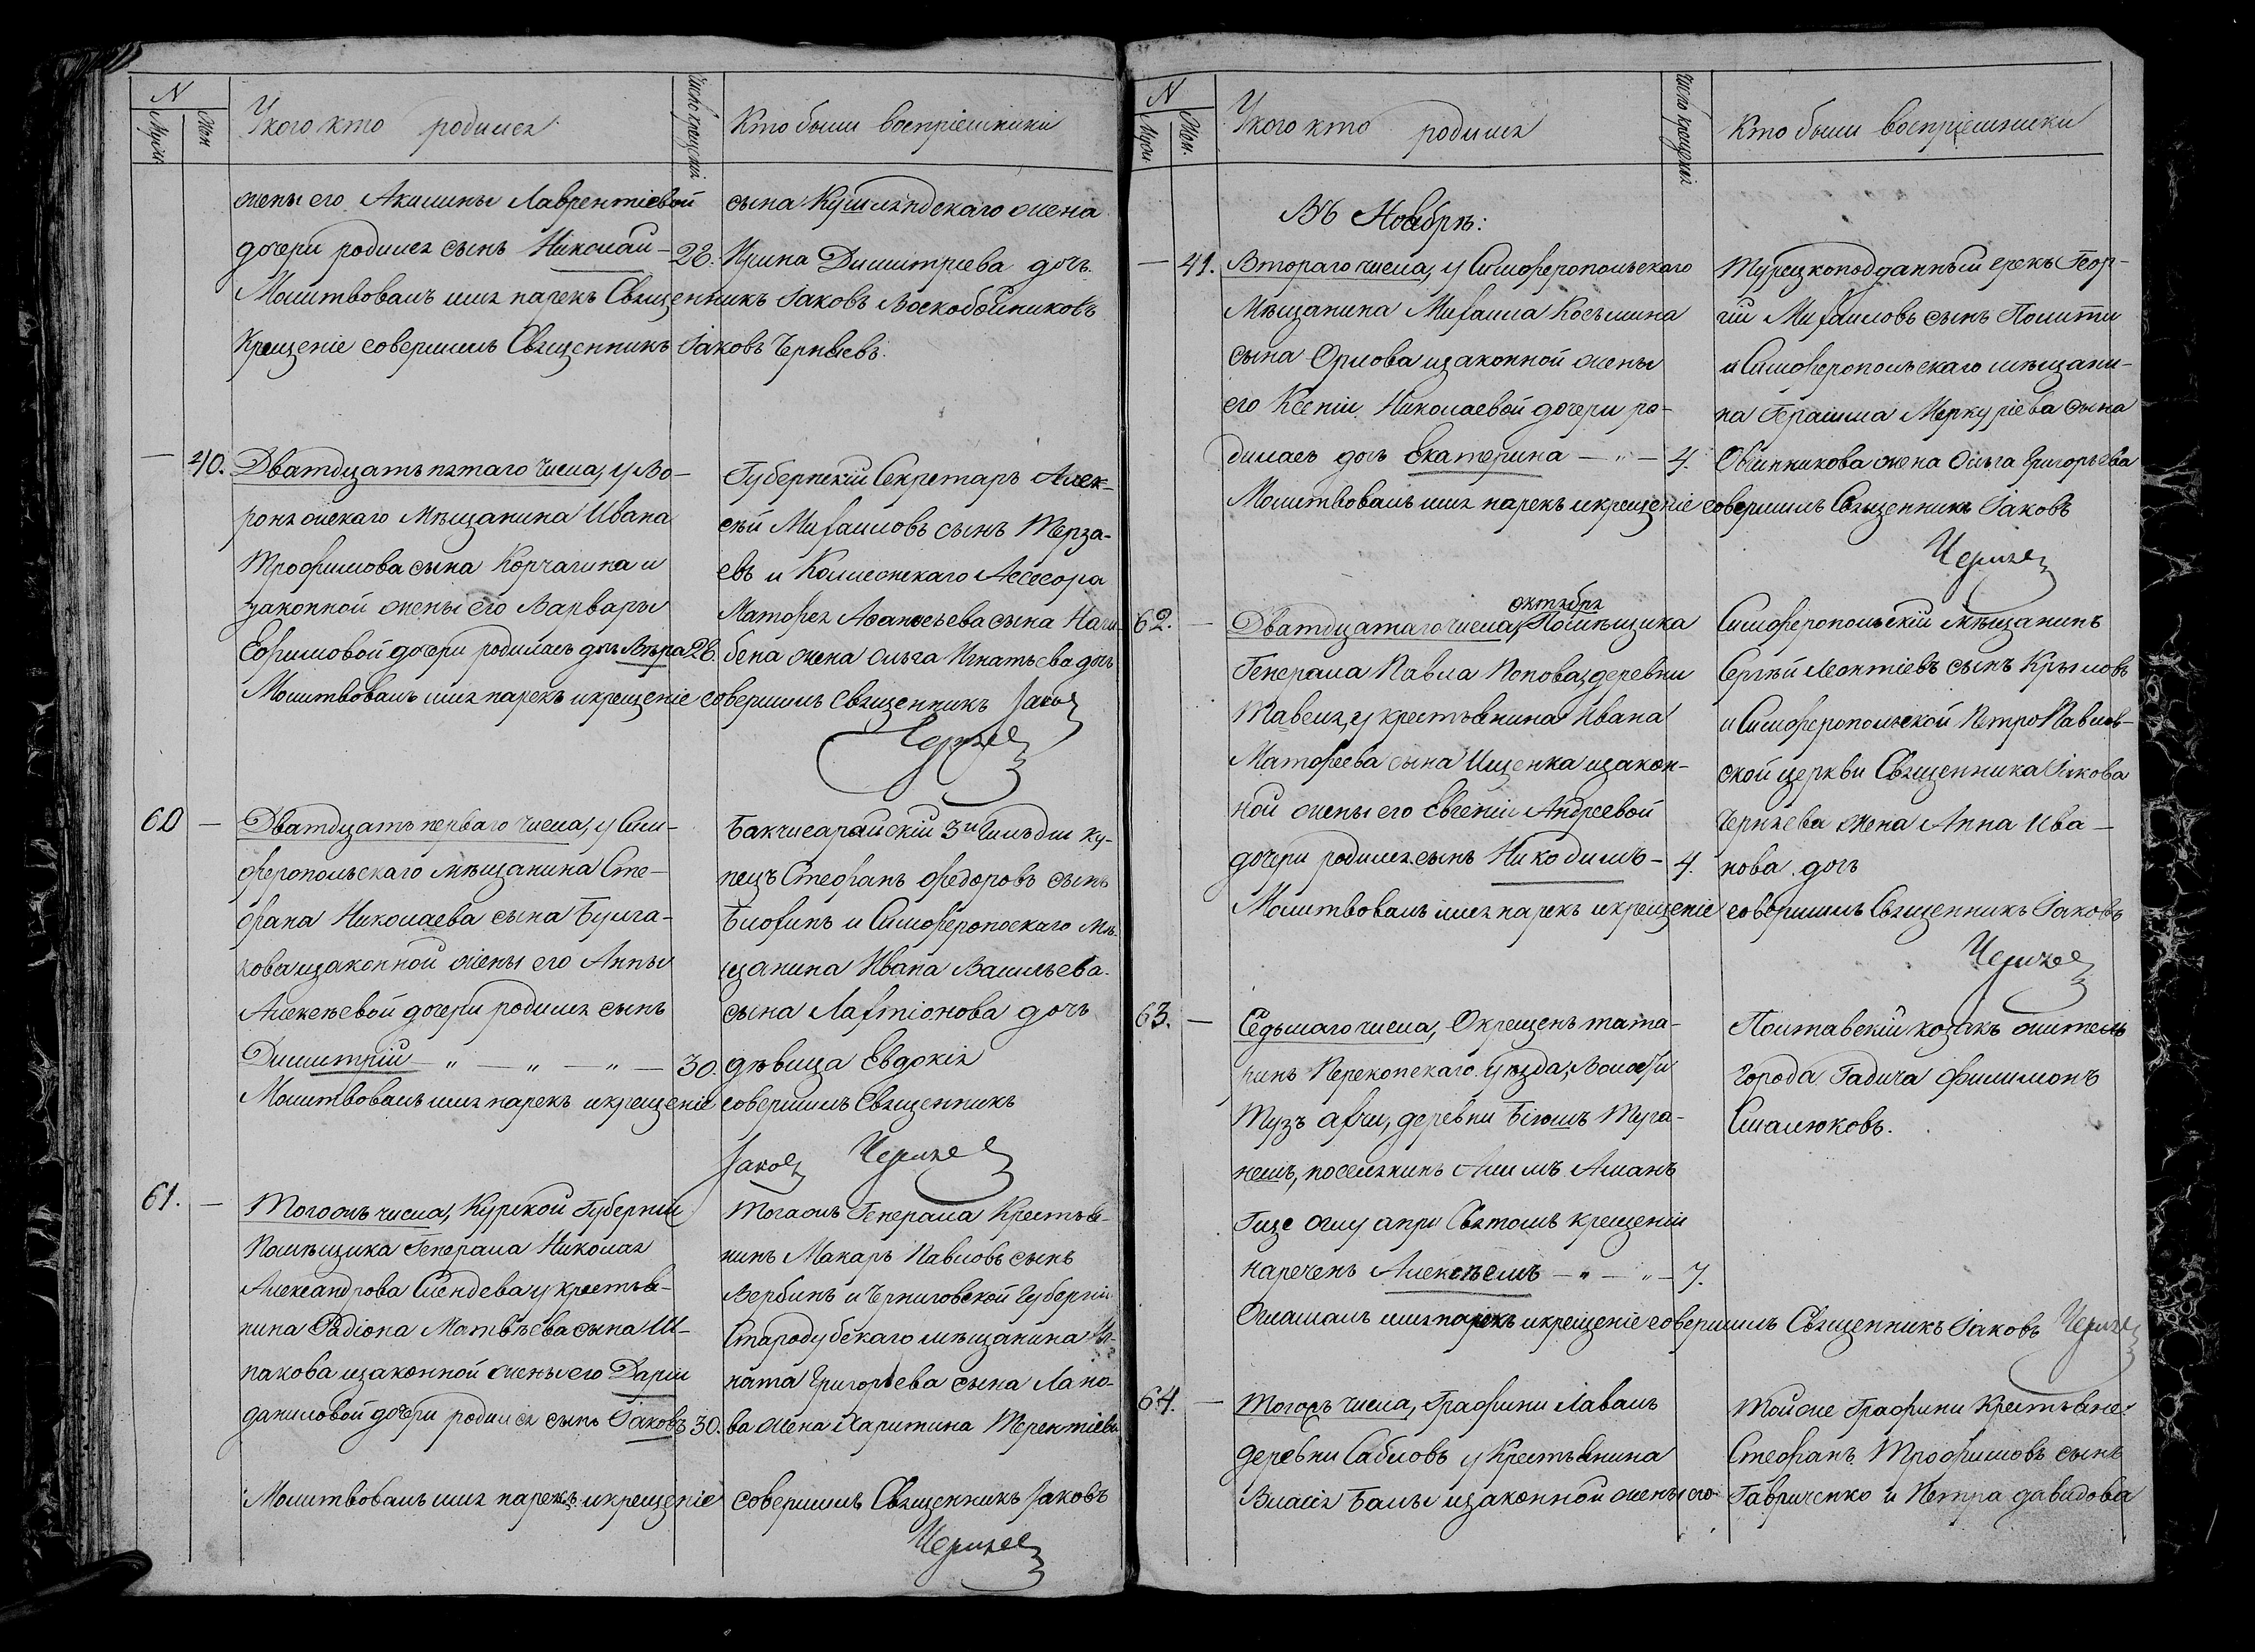 N
Муж.
Жен
У кого кто родился
Число крещенія
Кто были воспріемники
жены его Акилины Лаврентіевой
дочери родился сынъ Николай — 28.
Молитвовалъ имя нарекъ Священникъ Іаковъ Воскобойниковъ
Крещеніе совершилъ Священникъ Іаковъ Черняевъ.
сына жена
Ирина Димитріева дочь.
— 40. Дватдцать пятаго числа, у Во-
ронежскаго Мѣщанина Ивана
Трофимова сына Корчагина и
законной жены его Варвары
Ефимовой дочери родилась дочь Вѣра 28.
Молитвовалъ имя нарекъ и крещеніе совершилъ священникъ Іаковъ
Черняев
Губернскій Секретарь Алек-
сѣй Михаиловъ сынъ Терза-
евъ и Колежскаго Асесора
Матфея Афанасьева сына Наги-
бена жена Ольга Игнатьева дочь
60 — Дватдцать перваго числа, у Сим-
феропольскаго мѣщанина Сте-
фана Николаева сына Булга-
кова изаконной жены его Анны
Алексѣевой дочери родился сынъ
Димитрій — „ — „ — „ — 30.
Молитвовалъ имя нарекъ и крещеніе совершилъ Священникъ
Іаков Черняев
Бакчисарайскій 3й Гильдіи ку-
пецъ Стефанъ Федоровъ сынъ
Блохинъ и Симферопоскаго Мѣ-
щанина Ивана Васильева
сына Лахтіонова дочь
дѣвица Евдокія
61. — Тогожъ числа, Курской Губерніи
Помѣщика Генерала Николая
Александрова у крестья-
нина Радіона Матвѣева сына Ш-
пакова изаконной жены его Даріи
даниловой дочери родился сынъ Іаковъ 30.
Молитвовалъ имя нарекъ и крещеніе совершилъ Священникъ Іаковъ
Черняев
Тогажъ Генерала Крестья-
нинъ Макаръ Павловъ сынъ
Вербинъ и Черниговской Губерніи
Стародубскаго мѣщанина Иг-
ната Григорьева сына Лано-
ва жена Харитина Терентіева
N
Муж.
Жен.
У кого кто родился
Число крещенія
Кто были воспріемники
Въ Ноябрѣ:
— 41. Втораго числа, у Симферопольскаго
Мѣщанина Михаила Косьмина
сына Орлова изаконной жены
его Ксеніи Николаевой дочери ро-
дилась дочь Екатерина — „ — 4.
Молитвовалъ имя нарекъ и крещеніе совершилъ Священникъ Іаковъ
Черняев
Турецкоподданный грекъ Геор-
гій Михаиловъ сынъ Полити
и Симферопольскаго мѣщани-
на Герасима Меркуріева сына
Овчинникова жена Ольга Григорьева
62. — Дватдцатаго числа, октября Помѣщика
Генерала Павла Попова, деревни
Тавеля, у крестьянина Ивана
Матфеева сына Ищенка изакон-
ной жены его Евгеніи Андреевой
дочери родился сынъ Никодимъ — 4.
Молитвовалъ имя нарекъ и крещеніе совершилъ Священникъ Іаковъ
Черняев
Симферопольскій мѣщанинъ
Сергѣй Леонтіевъ сынъ Крыловъ
и Симферопольской Петро Павлов-
ской церкви Священника Іакова
Черняева жена Анна Ива-
нова дочь
63. — Седьмаго числа, Окрещенъ тата-
ринъ Перекопскаго уѣзда, Волости
Тузъ ахчи, деревни Біюмъ Туга-
немъ, поселянинъ Алимъ Аманъ
Гизе оглу апри Святомъ крещеніи
наречен Алексѣемъ — „ — „ — 7.
Оглашалъ имя нарекъ и крещеніе совершилъ Священникъ Іаковъ Черняев
Полтавскій козакъ житель
Города Гадяча Филимонъ
Смалюковъ.
64. — Тогожъ числа, Графини Лаваль
деревни Сабловъ у Крестьянина
Власія Балы изаконной жены его
Тойже Графини Крестьяне:
Стефанъ Трофимовъ сынъ
Гавриченко и Петра давидова